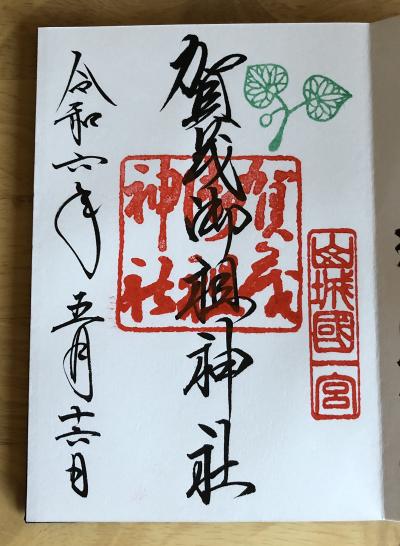 山城國一宮
賀茂御祖神社
賀茂
御祖
神社
令和六年 五月十六日